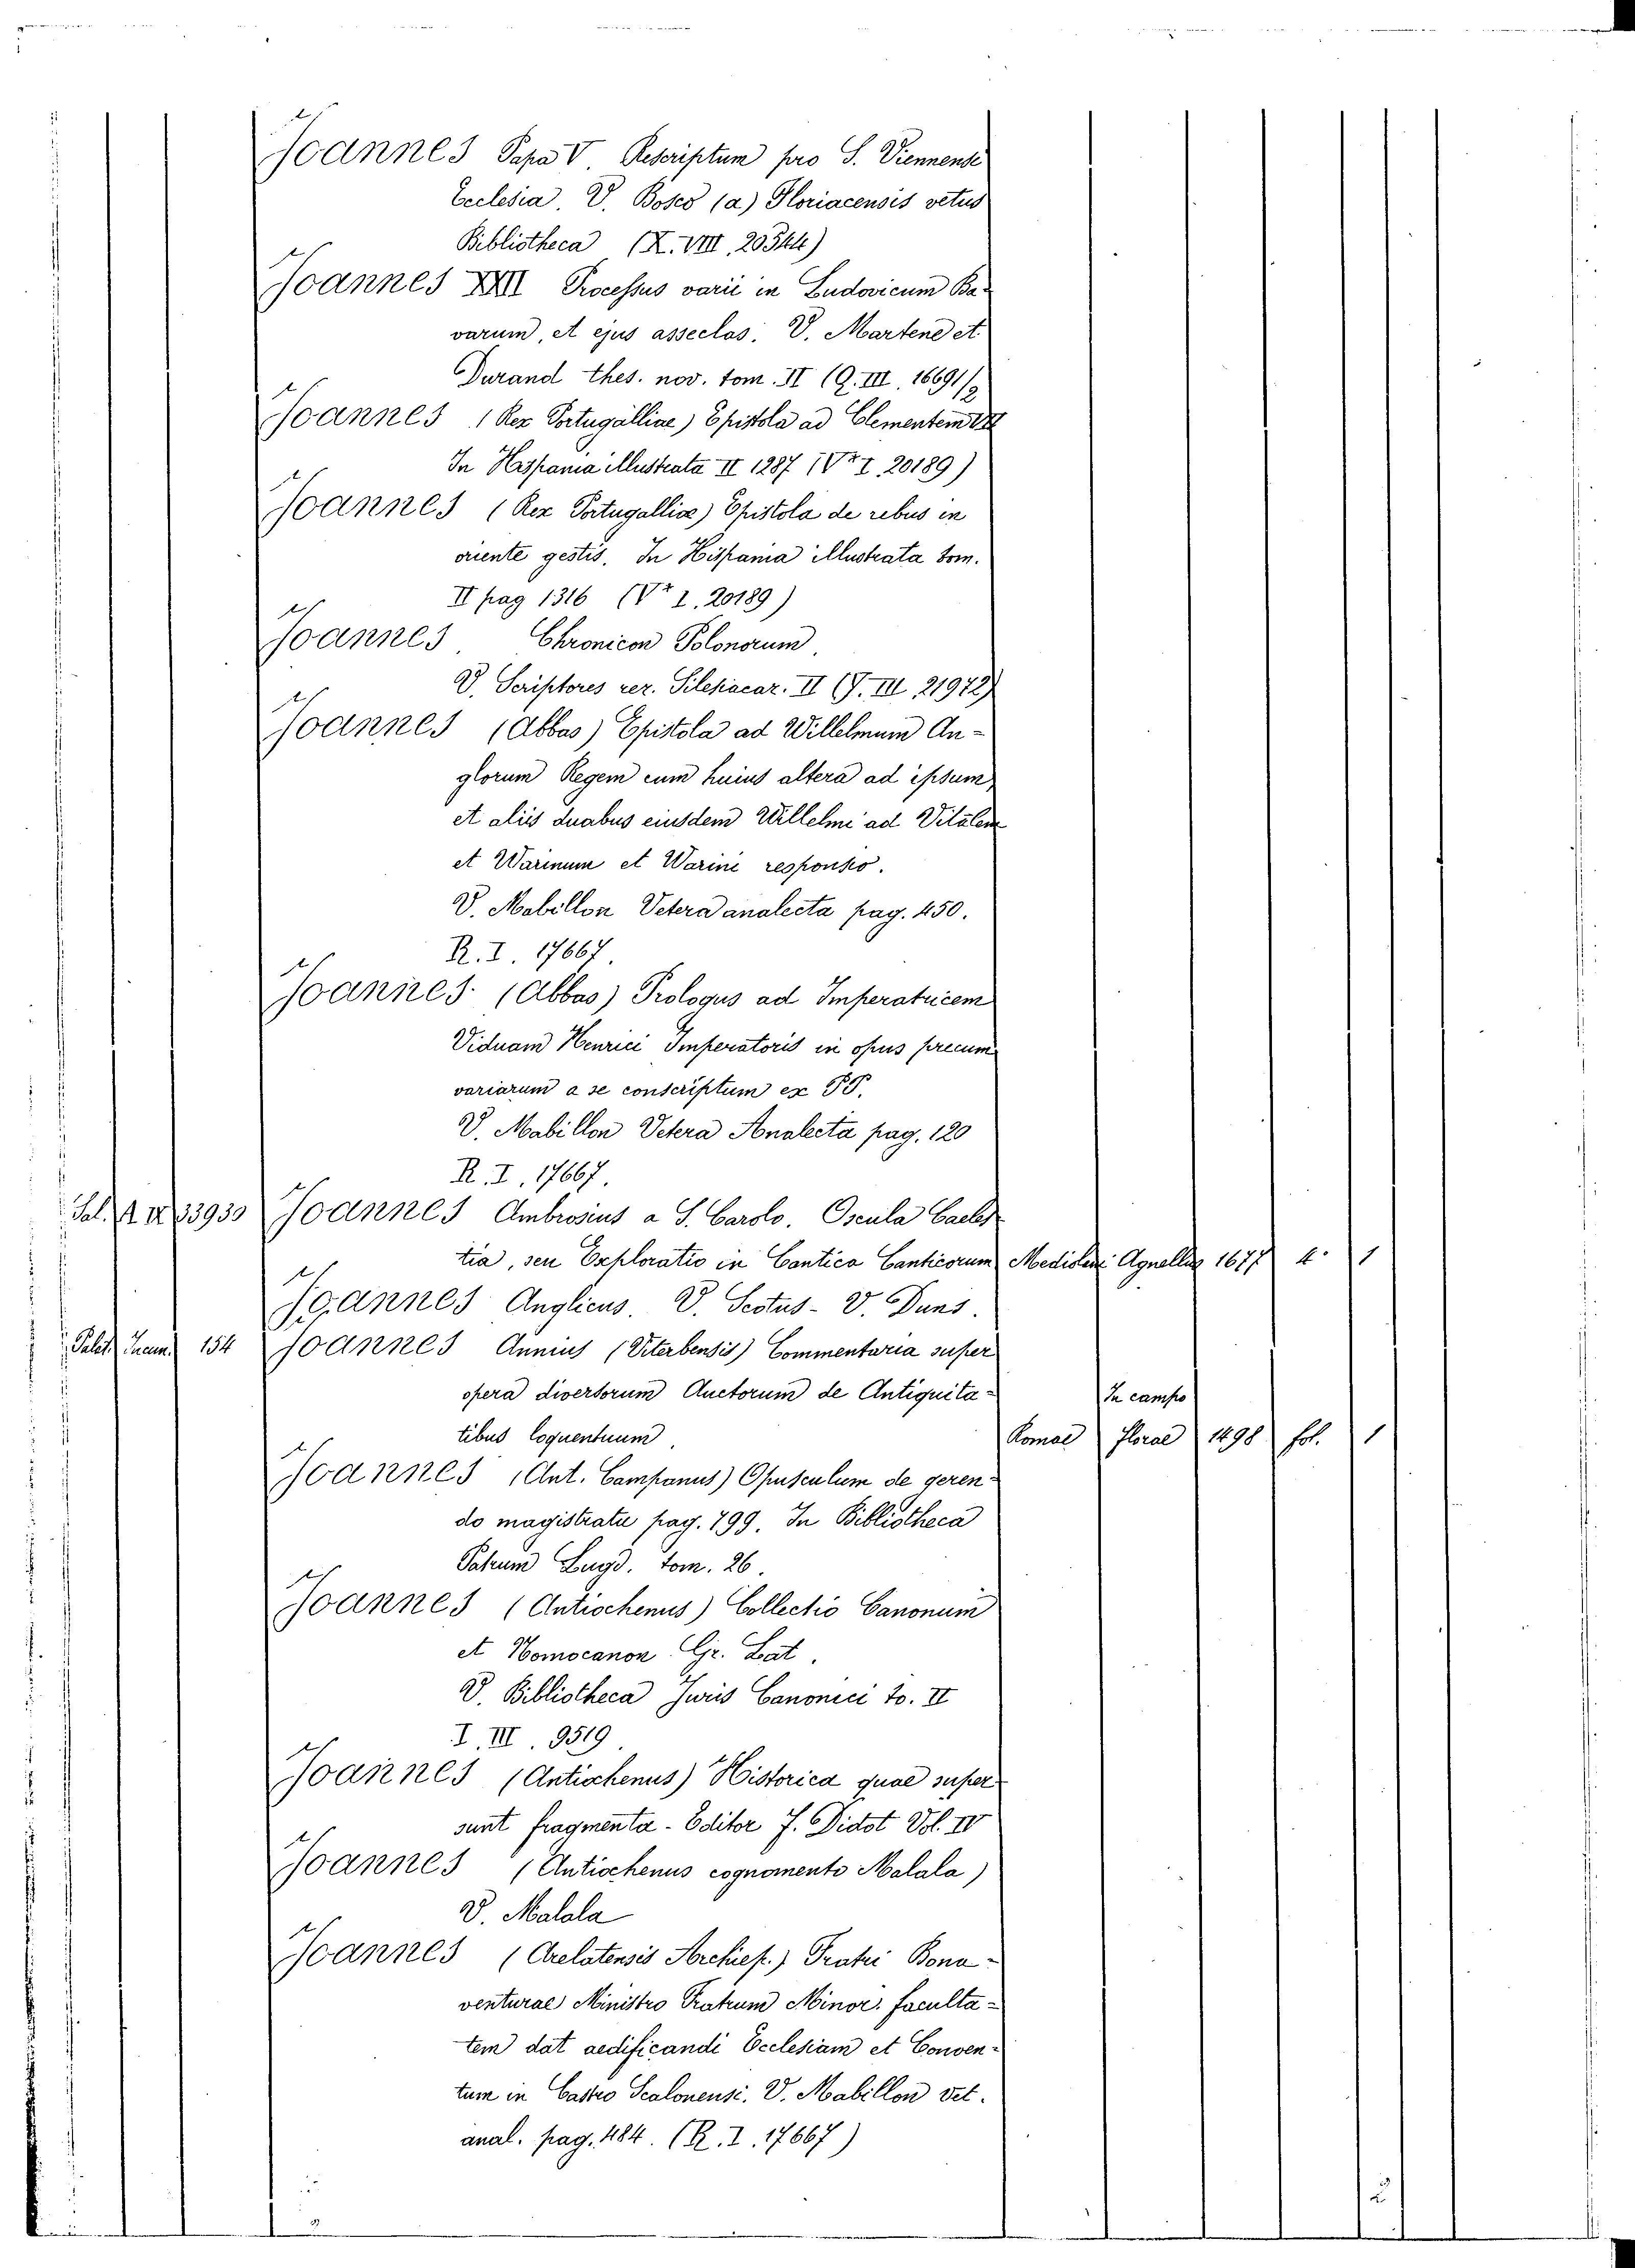 Joannes Papa V. Rescriptum pro S. Viennense
Ecclesia. V. Bosco (a) Floriacensis vetus
Bibliotheca (X. VIII, 20544)
Joannes XXII Processus varii in Ludovicum Ba-
varum, et ejus asseclas. V. Martene et
Durand thes. nov. tom. II (Q. III. 16691/2
Joannes (Rex Portugalliae) Epistola ad Clementem VII
In Hispania illustrata II 1287 (Vr I. 20189)
Joannes (Rex Portugalliae) Epistola de rebus in
oriente gestis. In Hispania illustrata tom.
II pag 1316 (Vr I. 20189)
Joannes Chronicon Polonorum.
V. Scriptores rer. Silesiacar. II (J. III 21972)
Joannes (Abbas) Epistola ad Willelmum An-
glorum Regem cum huius altera ad ipsum,
et aliis duabus eiusdem Willelmi ad Vitalem
et Warinum et Warini responsio.
V. Mabillon Vetera analecta pag. 450.
R. I. 17667.
Joannes (Abbas) Prologus ad Imperatricem
Viduam Henrici Imperatoris in opus precum
variarum a se conscriptum ex PP.
V. Mabillon Vetera Analecta pag. 120
R. I. 17667.
33930 Joannes Ambrosius a S. Carolo. Oscula Caeles
tia, seu Exploratio in Cantica Canticorum Mediolani Agnellus 1677 4° 1
Joannes Anglicus. V. Scotus - V. Duns.
Palat. Incun. 154 Joannes Annius (Viterbensis) Commentaria super
opera diversorum Auctorum de Antiquita- In campo
tibus loquentuum. Romae florae 1498 fol. 1
Joannes (Ant. Campanus) Opusculum de geren-
do magistratu pag. 799. In Bibliotheca
Patrum Lugd. tom. 26.
Joannes (Antiochenus) Collectio Canonum
et Nomocanon Gr. Lat.
V. Bibliotheca Juris Canonici to. II
I. III. 9519.
Joannes (Antiochenus) Historica quae super
sunt fragmenta - Editor F. Didot Vol. IV
Joannes (Antiochenus cognomento Malala)
V. Malala
Joannes (Arelatensis Archiep.) Fratri Bona-
venturae Ministro Fratrum Minor. faculta-
tem dat aedificandi Ecclesiam et Conven-
tum in Castro Scalonensi. V. Mabillon vet.
anal. pag. 484. (R. I. 17667)
2